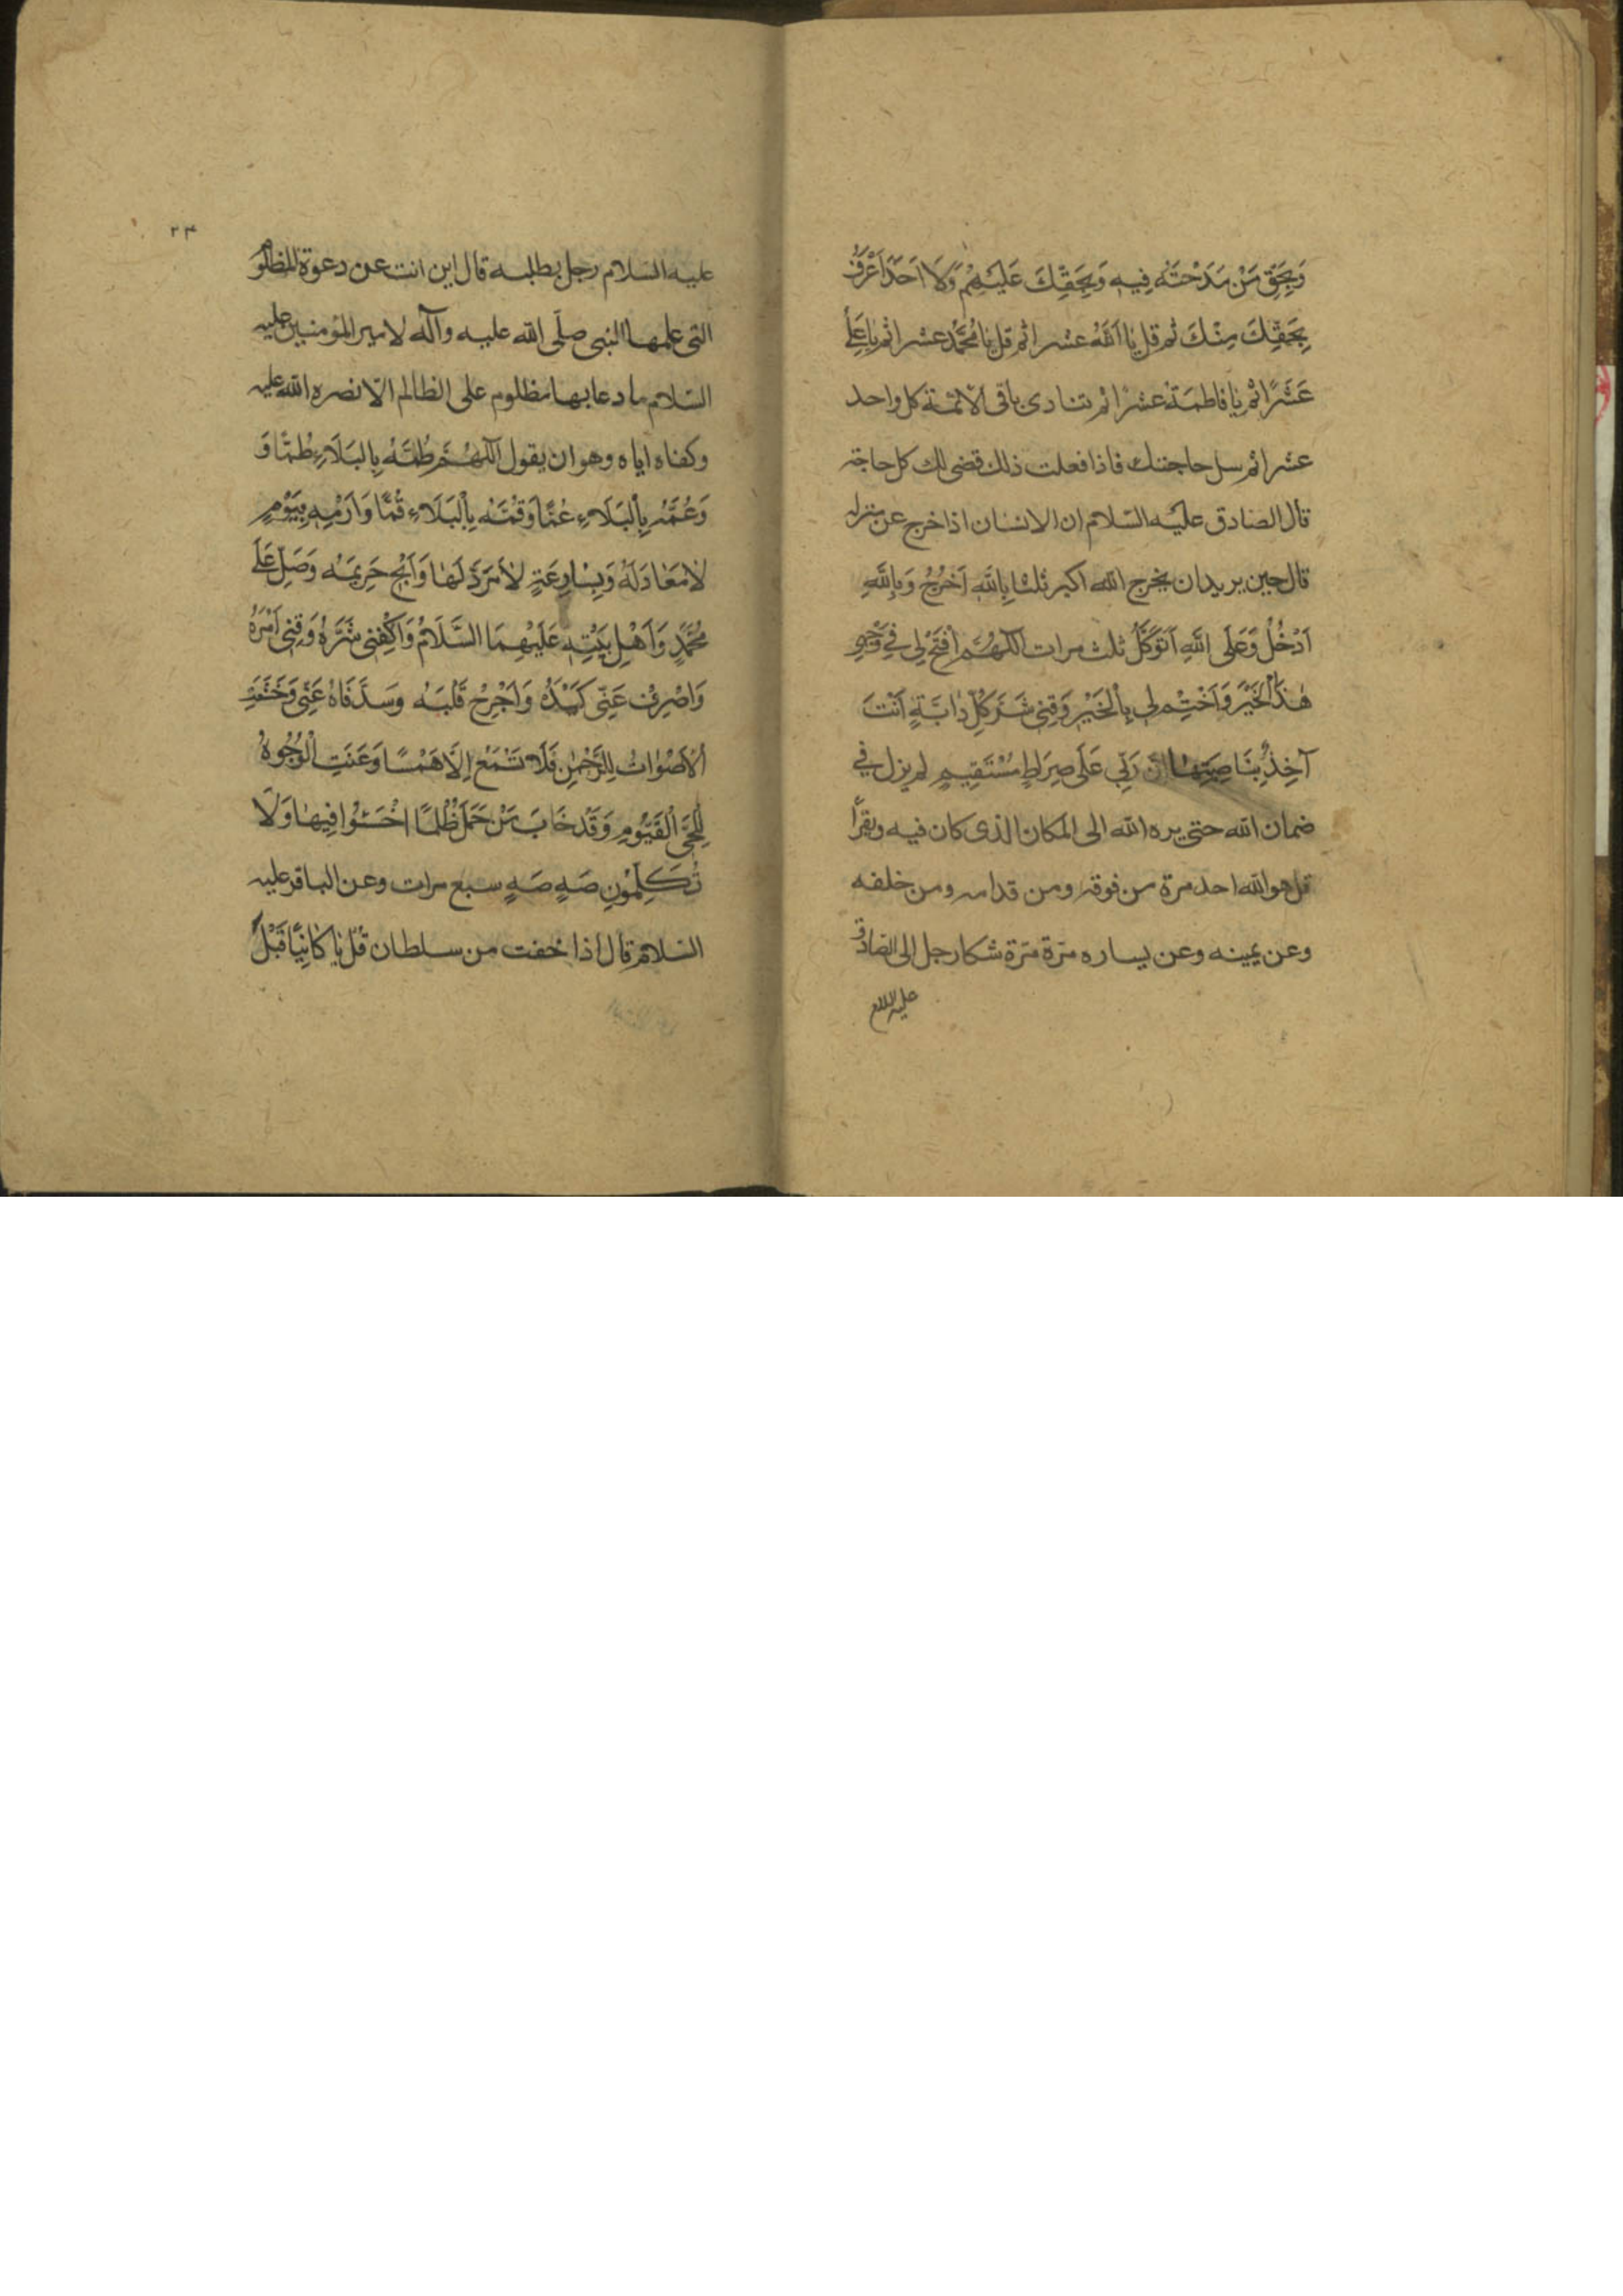 وَبِحَقِّ مَنْ مَدَحْتَهُ فِيهِ وَبِحَقِّكَ عَلَيْهِمْ وَلَا اَحَدًا اَعْرَفُ
بِحَقِّكَ مِنْكَ ثم قل يَا اَللّٰهُ عشرا ثم قل يَا مُحَمَّدُ عشرا ثم يَا عَلِيُّ
عَشْرًا ثم يَا فَاطِمَةُ عشرًا ثم تنادى باقى الائمة كل واحد
عشرا ثم سل حاجتك فاذا فعلت ذلك قضى لك كل حاجة
قال الصادق عليه السّلام ان الانسان اذا خرج عن منزله
قال حين يريد ان يخرج الله اكبر ثلثا بِاللّٰهِ اَخْرُجُ وَبِاللّٰهِ
اَدْخُلُ وَعَلَى اللّٰهِ اَتَوَكَّلُ ثلث مرات اَللّٰهُمَّ افْتَحْ لِي فِي وَجْهِي
هٰذَا الْخَيْرَ وَاخْتِمْ لِي بِالْخَيْرِ وَقِنِي شَرَّ كُلِّ دَابَّةٍ اَنْتَ
آخِذٌ بِنَاصِيَتِهَا اِنَّ رَبِّي عَلَى صِرَاطٍ مُسْتَقِيمٍ لم يزل في
ضمان الله حتى يرده الله الى المكان الذى كان فيه ويقرأ
قل هو الله احد مرة من فوقه ومن قدامه ومن خلفه
وعن يمينه وعن يساره مرّة مرّة شكا رجل الى الصادق
عليه السلام
٢٤
عليه السلام رجل يطلبه قال اين انت عن دعوة المظلوم
التى علمها النبى صلّى الله عليه وآله لامير المؤمنين عليه
السّلام ما دعا بها مظلوم على الظالم الّا نصره الله عليه
وكفاه اياه وهو ان يقول اَللّٰهُمَّ طُمَّهُ بِالْبَلَاءِ طَمًّا وَ
وَعُمَّهُ بِالْبَلَاءِ عَمًّا وَقُمَّهُ بِالْبَلَاءِ قَمًّا وَارْمِهِ بِيَوْمٍ
لَا مَعَادَ لَهُ وَبِسَارِعَةٍ لَا مَرَدَّ لَهَا وَاَبِحْ حَرِيمَهُ وَصَلِّ عَلَى
مُحَمَّدٍ وَاَهْلِ بَيْتِهِ عَلَيْهِمَا السَّلَامُ وَاكْفِنِي شَرَّهُ وَقِنِي اَمْرَهُ
وَاصْرِفْ عَنِّي كَيْدَهُ وَاجْرِحْ قَلْبَهُ وَسُدَّ فَاهُ عَنِّي وَخَشَعَتِ
الْاَصْوَاتُ لِلرَّحْمٰنِ فَلَا تَسْمَعُ اِلَّا هَمْسًا وَعَنَتِ الْوُجُوهُ
لِلْحَيِّ الْقَيُّومِ وَقَدْ خَابَ مَنْ حَمَلَ ظُلْمًا اخْسَئُوا فِيهَا وَلَا
تُكَلِّمُونِ صَهٍ صَهٍ سبع مرات وعن الباقر عليه
السّلام قال اذا خفت من سلطان قُلْ يَا كَائِنًا قَبْلَ